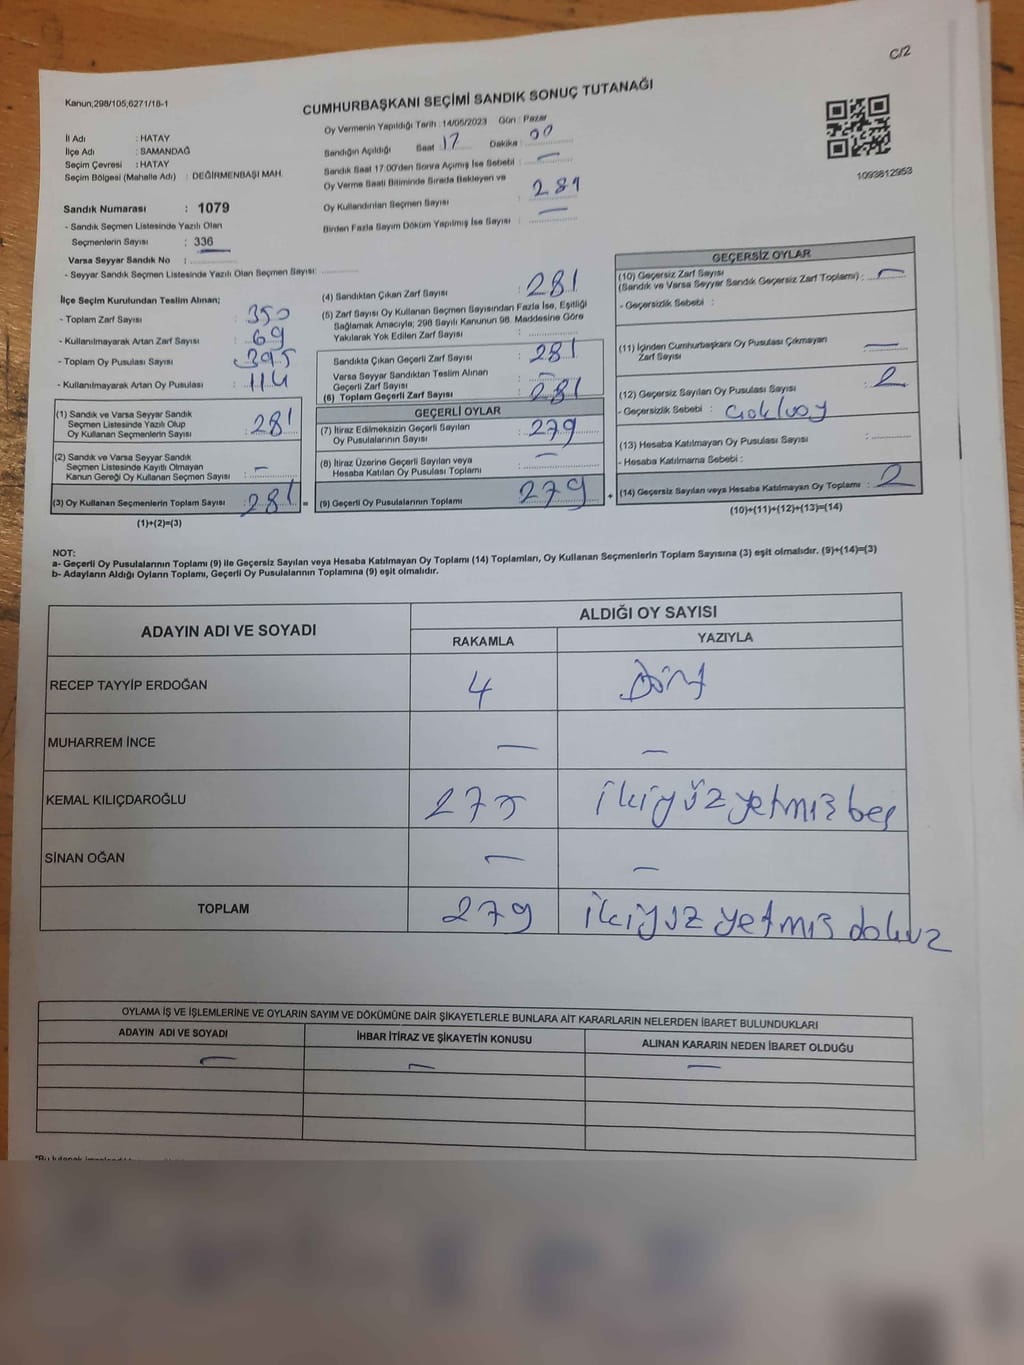 C/2
Kanun;298/105;6271/18-1
CUMHURBAŞKANI SEÇİMİ SANDIK SONUÇ TUTANAĞI
İl Adı : HATAY
İlçe Adı : SAMANDAĞ
Seçim Çevresi : HATAY
Seçim Bölgesi (Mahalle Adı) : DEĞİRMENBAŞI MAH.
Sandık Numarası : 1079
- Sandık Seçmen Listesinde Yazılı Olan
Seçmenlerin Sayısı : 336
Varsa Seyyar Sandık No :
- Seyyar Sandık Seçmen Listesinde Yazılı Olan Seçmen Sayısı:
Oy Vermenin Yapıldığı Tarih : 14/05/2023 Gün : Pazar
Sandığın Açıldığı Saat : 17 Dakika : 00
Sandık Saat 17:00'den Sonra Açımış İse Sebebi : —
Oy Verme Saati Bitiminde Sırada Bekleyen ve
Oy Kullandırılan Seçmen Sayısı : 281
Birden Fazla Sayım Döküm Yapılmış İse Sayısı : —
1093812953
İlçe Seçim Kurulundan Teslim Alınan;
- Toplam Zarf Sayısı : 350
- Kullanılmayarak Artan Zarf Sayısı : 69
- Toplam Oy Pusulası Sayısı : 395
- Kullanılmayarak Artan Oy Pusulası : 114
(1) Sandık ve Varsa Seyyar Sandık
Seçmen Listesinde Yazılı Olup
Oy Kullanan Seçmenlerin Sayısı : 281
(2) Sandık ve Varsa Seyyar Sandık
Seçmen Listesinde Kayıtlı Olmayan
Kanun Gereği Oy Kullanan Seçmen Sayısı : —
(3) Oy Kullanan Seçmenlerin Toplam Sayısı : 281 =
(1)+(2)=(3)
(4) Sandıktan Çıkan Zarf Sayısı : 281
(5) Zarf Sayısı Oy Kullanan Seçmen Sayısından Fazla İse, Eşitliği
Sağlamak Amacıyla; 298 Sayılı Kanunun 98. Maddesine Göre
Yakılarak Yok Edilen Zarf Sayısı :
Sandıkta Çıkan Geçerli Zarf Sayısı : 281
Varsa Seyyar Sandıktan Teslim Alınan
Geçerli Zarf Sayısı : —
(6) Toplam Geçerli Zarf Sayısı : 281
GEÇERLİ OYLAR
(7) İtiraz Edilmeksizin Geçerli Sayılan
Oy Pusulalarının Sayısı : 279
(8) İtiraz Üzerine Geçerli Sayılan veya
Hesaba Katılan Oy Pusulası Toplamı : —
(9) Geçerli Oy Pusulalarının Toplamı : 279 +
GEÇERSİZ OYLAR
(10) Geçersiz Zarf Sayısı
(Sandık ve Varsa Seyyar Sandık Geçersiz Zarf Toplamı) : —
- Geçersizlik Sebebi :
(11) İçinden Cumhurbaşkanı Oy Pusulası Çıkmayan
Zarf Sayısı : —
(12) Geçersiz Sayılan Oy Pusulası Sayısı : 2
- Geçersizlik Sebebi :
(13) Hesaba Katılmayan Oy Pusulası Sayısı :
- Hesaba Katılmama Sebebi :
(14) Geçersiz Sayılan veya Hesaba Katılmayan Oy Toplamı : 2
(10)+(11)+(12)+(13)=(14)
NOT:
a- Geçerli Oy Pusulalarının Toplamı (9) ile Geçersiz Sayılan veya Hesaba Katılmayan Oy Toplamı (14) Toplamları, Oy Kullanan Seçmenlerin Toplam Sayısına (3) eşit olmalıdır. (9)+(14)=(3)
b- Adayların Aldığı Oyların Toplamı, Geçerli Oy Pusulalarının Toplamına (9) eşit olmalıdır.
ADAYIN ADI VE SOYADI
ALDIĞI OY SAYISI
RAKAMLA YAZIYLA
RECEP TAYYİP ERDOĞAN 4 Dört
MUHARREM İNCE — —
KEMAL KILIÇDAROĞLU 275 ikiyüz yetmiş beş
SİNAN OĞAN — —
TOPLAM 279 ikiyüz yetmiş dokuz
OYLAMA İŞ VE İŞLEMLERİNE VE OYLARIN SAYIM VE DÖKÜMÜNE DAİR ŞİKAYETLERLE BUNLARA AİT KARARLARIN NELERDEN İBARET BULUNDUKLARI
ADAYIN ADI VE SOYADI İHBAR İTİRAZ VE ŞİKAYETİN KONUSU ALINAN KARARIN NEDEN İBARET OLDUĞU
— — —